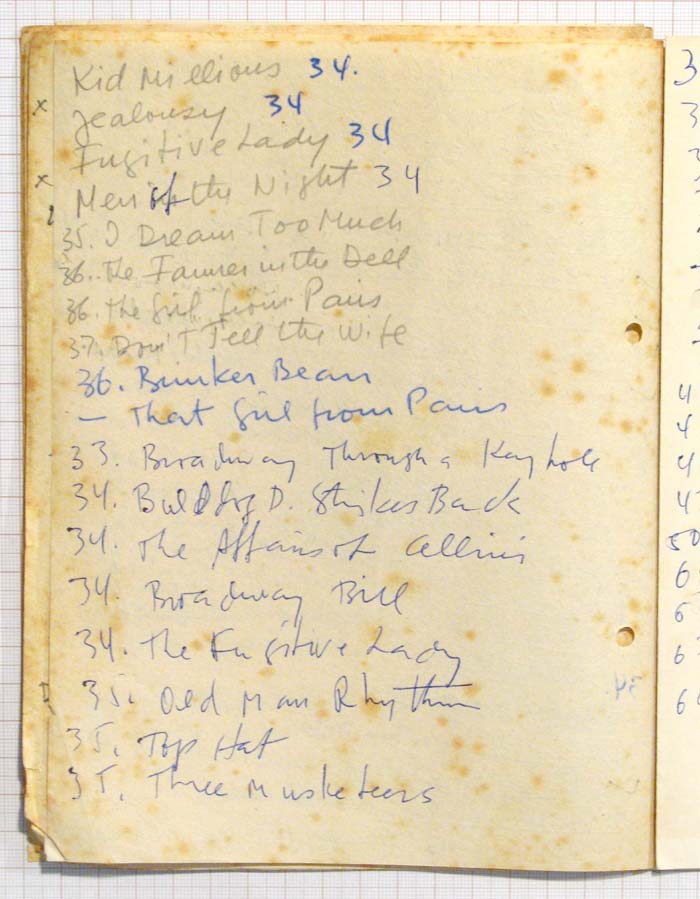 Kid Millions 34.
x
Jealousy 34
Fugitive Lady 34
x
Men of the Night 34
35. I Dream Too Much
36. The Farmer in the Dell
36. The Girl from Paris
37. Don't Tell the Wife
36. Bunker Bean
— That Girl from Paris
33. Broadway Through a Keyhole
34. Bulldog D. Strikes Back
34. The Affairs of Cellini
34. Broadway Bill
34. The Fugitive Lady
35. Old Man Rhythm
35. Top Hat
35. Three Musketeers
3
3
3
4
4
4
4
50
6
6
6
6